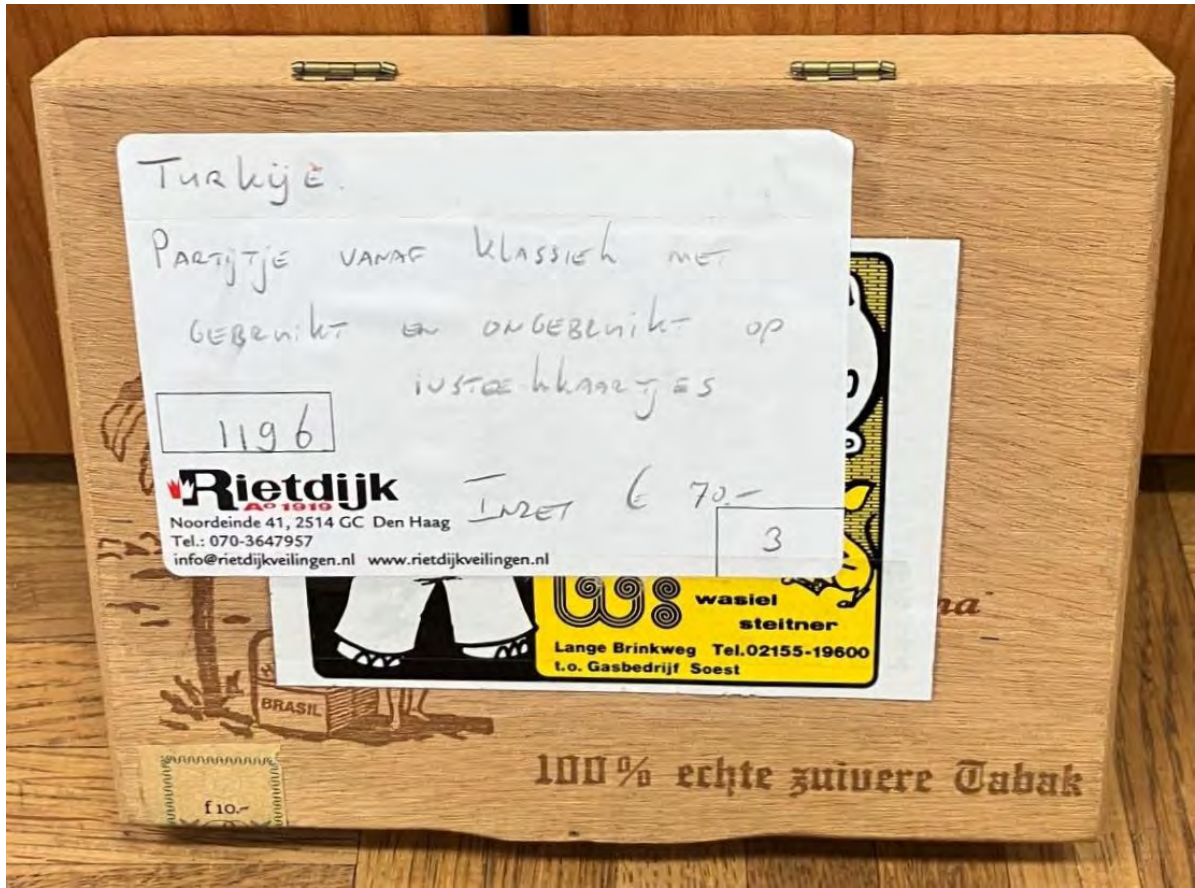 Turkije.
Partijtje vanaf klassiek met
gebruikt en ongebruikt op
insteekkaartjes
1196
Rietdijk
Aº 1919
Inzet € 70.-
Noordeinde 41, 2514 GC Den Haag
Tel.: 070-3647957
info@rietdijkveilingen.nl www.rietdijkveilingen.nl
3
wasiel
steitner
Lange Brinkweg Tel.02155-19600
t.o. Gasbedrijf Soest
BRASIL
f 10.-
100% echte zuivere Tabak